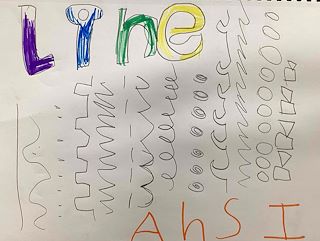 Line
AhSI